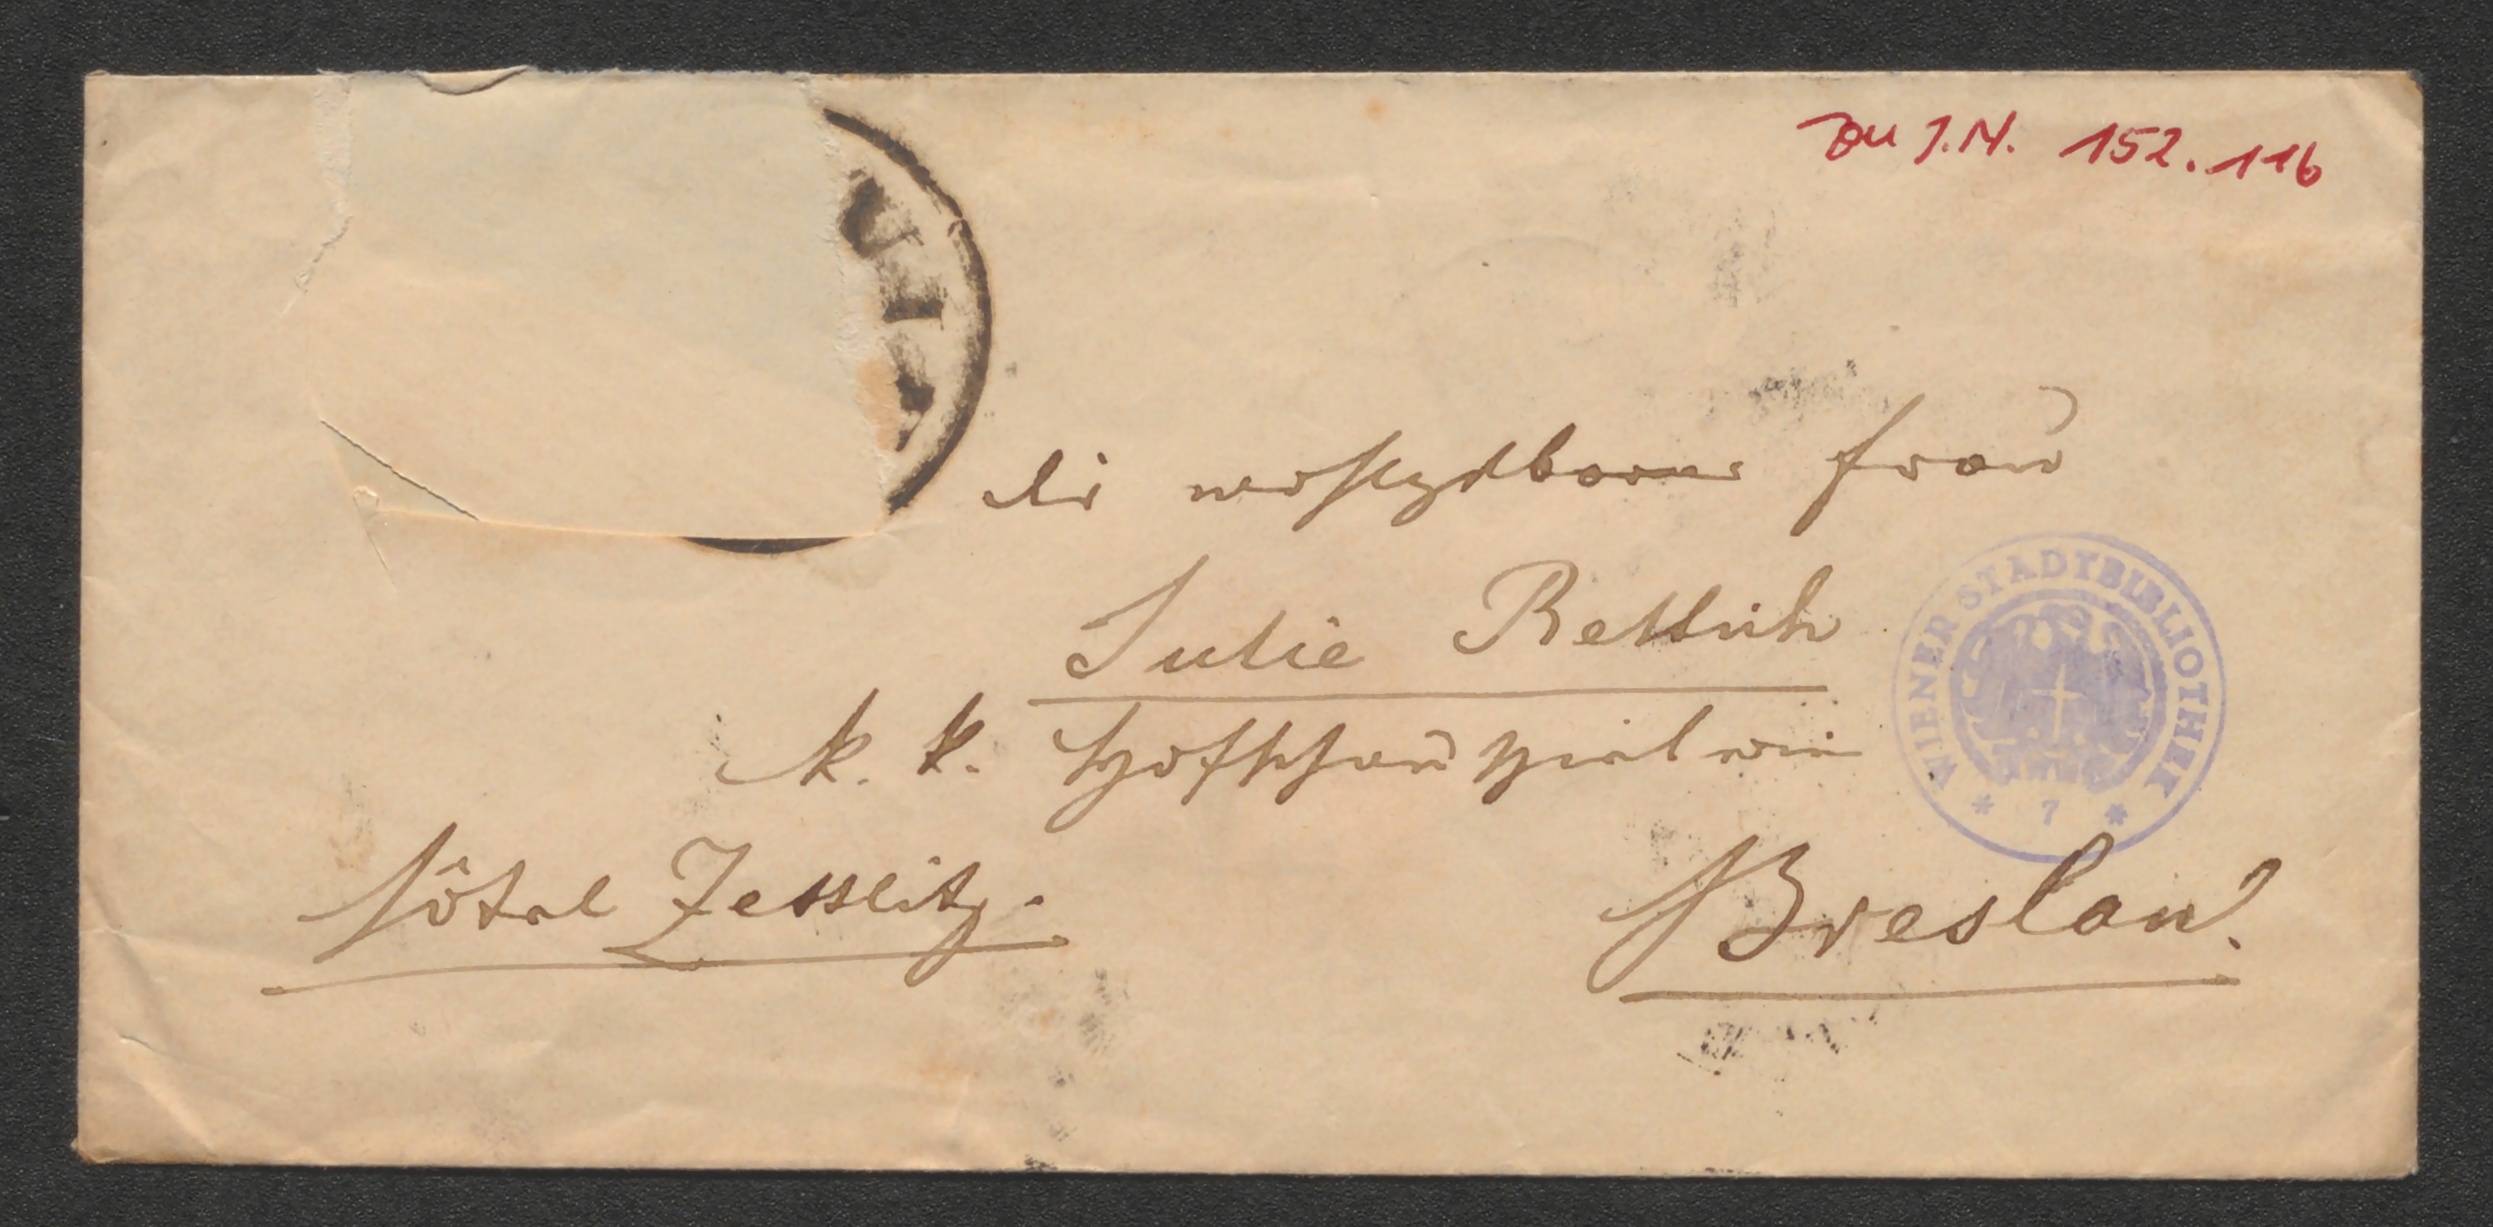 zu J.N. 152.116
die wohlgeborne Frau
Julie Rettich
k. k. Hofschauspielerin
Hôtel Zettlitz.
Breslau.
WIENER STADTBIBLIOTHEK
* 7 *